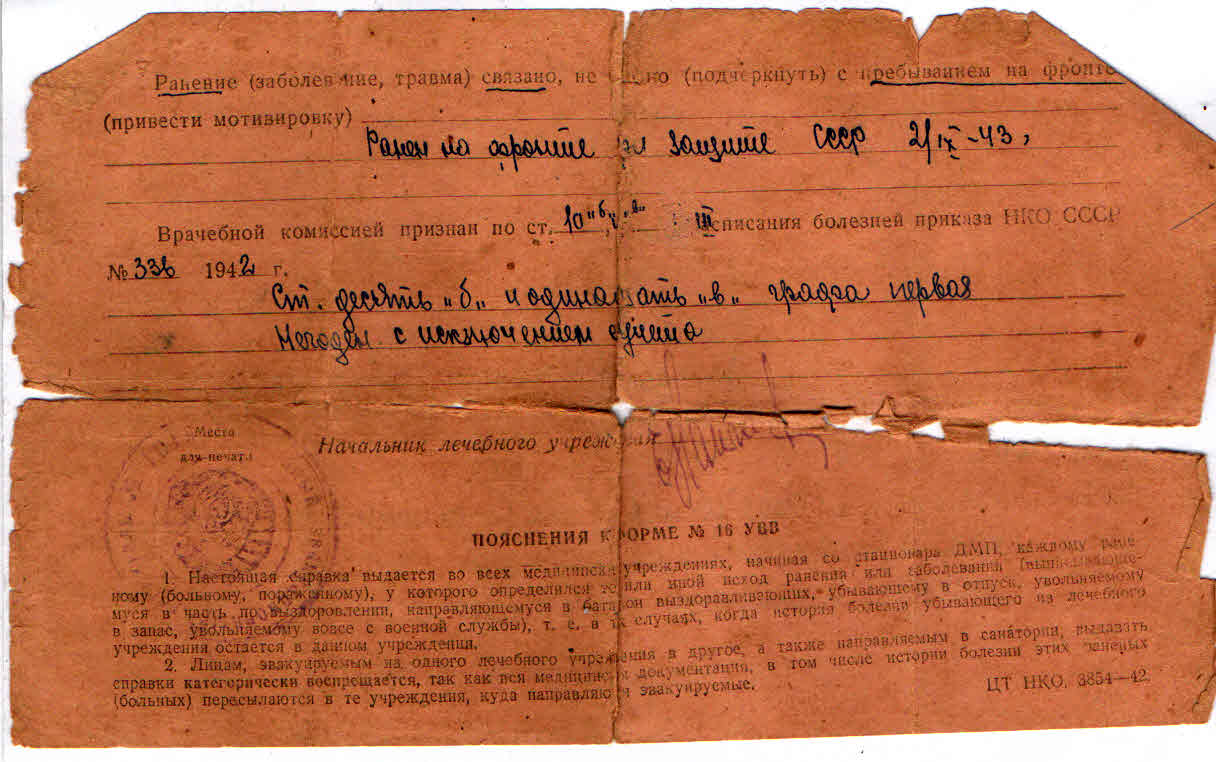 Ранение (заболевание, травма) связано, не связано (подчеркнуть) с пребыванием на фронте
(привести мотивировку)
Ранен на фронте при защите СССР 2/IX-43,
Врачебной комиссией признан по ст. 10 "б" "в" III расписания болезней приказа НКО СССР
№ 336 1942 г.
Ст. десять "б" и одинадцать "в" графа первая
Негоден с исключением с учета
Место
для печати
Начальник лечебного учреждения
ПОЯСНЕНИЯ К ФОРМЕ № 16 УВВ
1. Настоящая справка выдается во всех медицинских учреждениях, начиная со стационара ДМП, каждому ране-
ному (больному, пораженному), у которого определился тот или иной исход ранения или заболевания (выписывающе-
муся в часть по выздоровлении, направляющемуся в батальон выздоравливающих, убывающему в отпуск, увольняемому
в запас, увольняемому вовсе с военной службы), т. е. в тех случаях, когда история болезни убывающего из лечебного
учреждения остается в данном учреждении.
2. Лицам, эвакуируемым из одного лечебного учреждения в другое, а также направляемым в санатории, выдавать
справки категорически воспрещается, так как вся медицинская документация, в том числе истории болезни этих раненых
(больных) пересылаются в те учреждения, куда направляются эвакуируемые.
ЦТ НКО. 3854—42.